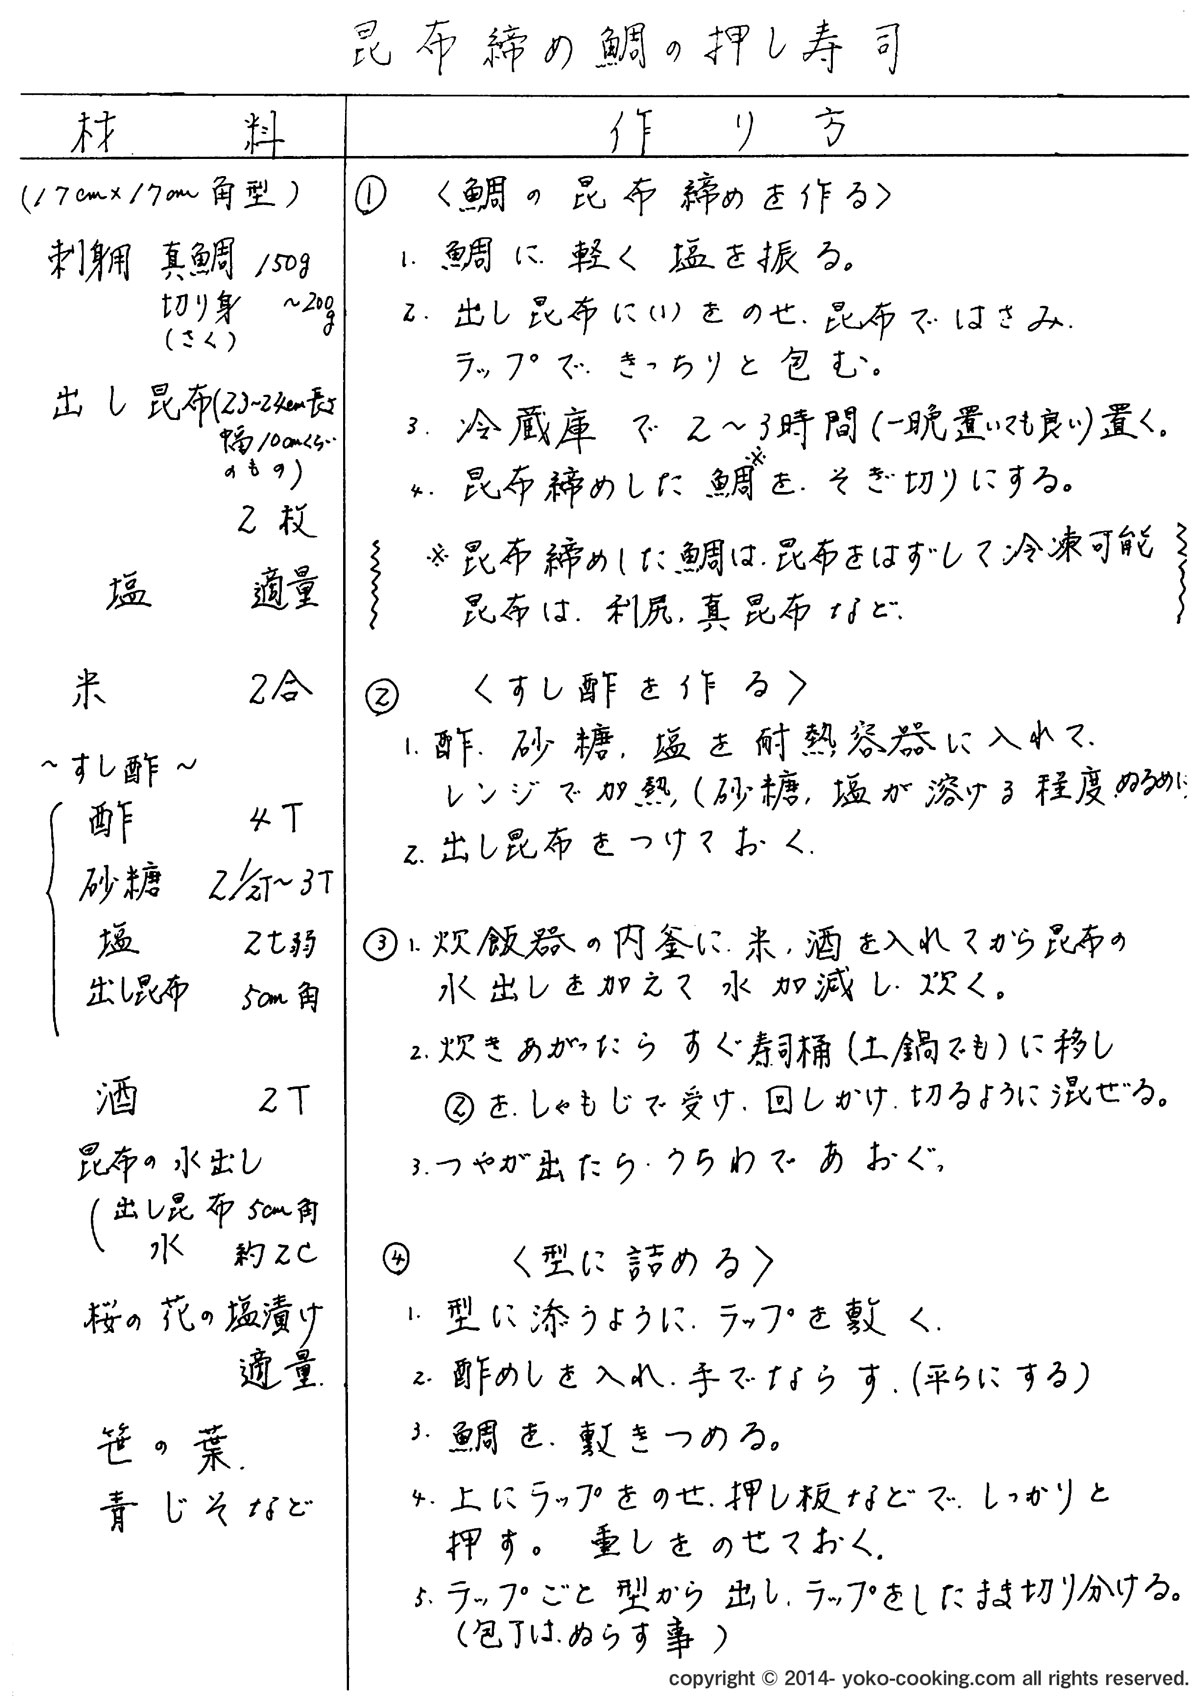 昆布締め鯛の押し寿司
材料
(17cm×17cm角型)
刺身用 真鯛 150g
切り身 ~200g
(さく)
出し昆布(23~24cm長さ
幅10cmくらい
のもの)
2枚
塩 適量
米 2合
~すし酢~
酢 4T
砂糖 2 1/2T~3T
塩 2t弱
出し昆布 5cm角
酒 2T
昆布の水出し
(出し昆布 5cm角
水 約2C
桜の花の塩漬け
適量.
笹の葉.
青じそなど
作り方
① 〈鯛の昆布締めを作る〉
1. 鯛に、軽く塩を振る。
2. 出し昆布に(1)をのせ、昆布ではさみ、
ラップで、きっちりと包む。
3. 冷蔵庫で2~3時間(一晩置いても良い)置く。
4. 昆布締めした鯛※を、そぎ切りにする。
※昆布締めした鯛は、昆布をはずして冷凍可能
昆布は、利尻、真昆布など、
② 〈すし酢を作る〉
1. 酢、砂糖、塩を耐熱容器に入れて、
レンジで加熱、(砂糖、塩が溶ける程度、ぬるめに
2. 出し昆布をつけておく.
③ 1. 炊飯器の内釜に、米、酒を入れてから昆布の
水出しを加えて水加減し、炊く。
2. 炊きあがったらすぐ寿司桶(土鍋でも)に移し
②を、しゃもじで受け、回しかけ、切るように混ぜる。
3. つやが出たら、うちわであおぐ。
④ 〈型に詰める〉
1. 型に添うように、ラップを敷く.
2. 酢めしを入れ、手でならす.(平らにする)
3. 鯛を、敷きつめる。
4. 上にラップをのせ、押し板などで、しっかりと
押す。重しをのせておく.
5. ラップごと型から出し、ラップをしたまま切り分ける。
(包丁は、ぬらす事)
copyright © 2014- yoko-cooking.com all rights reserved.